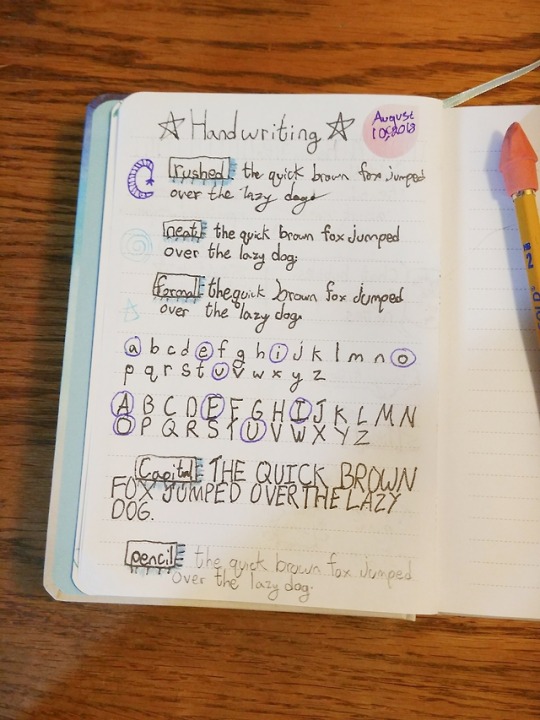 Handwriting
August
10, 2018
rushed the quick brown fox jumped
over the lazy dog
neat the quick brown fox jumped
over the lazy dog.
formal the quick brown fox jumped
over the lazy dog.
a b c d e f g h i j k l m n o
p q r s t u v w x y z
A B C D E F G H I J K L M N
O P Q R S T U V W X Y Z
Capital THE QUICK BROWN
FOX JUMPED OVER THE LAZY
DOG.
pencil the quick brown fox jumped
over the lazy dog.
2